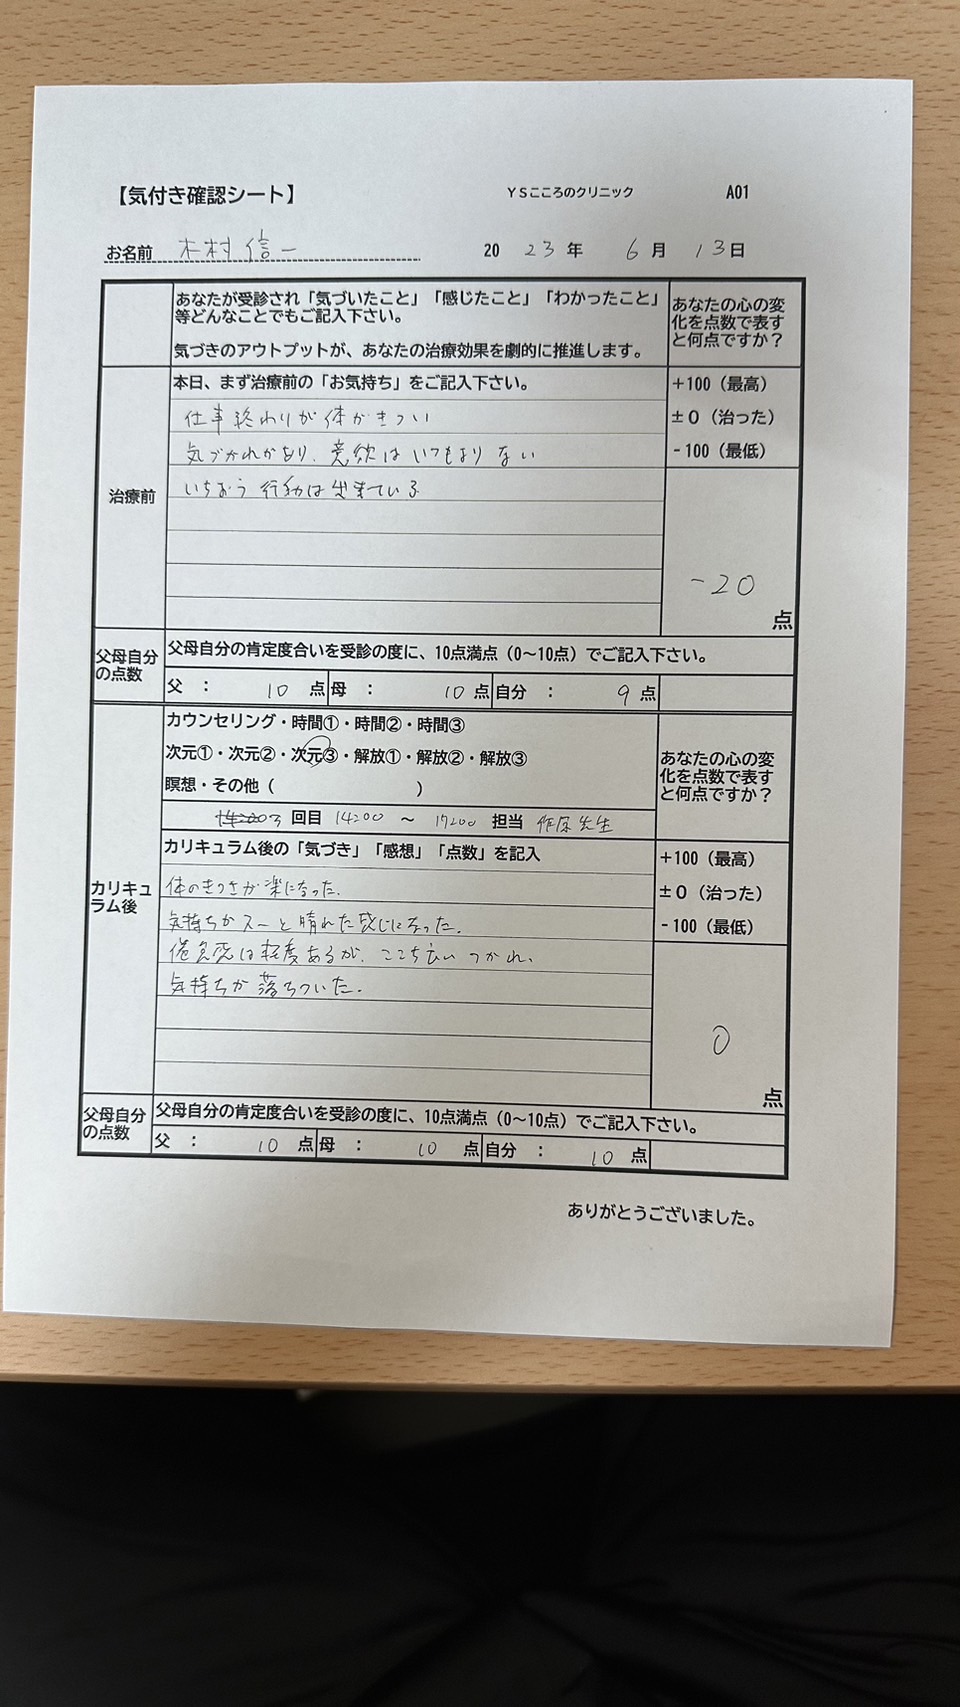 【気付き確認シート】 YSこころのクリニック A01
お名前 木村信一 2023年 6月 13日
あなたが受診され「気づいたこと」「感じたこと」「わかったこと」
等どんなことでもご記入下さい。
気づきのアウトプットが、あなたの治療効果を劇的に推進します。
あなたの心の変
化を点数で表す
と何点ですか？
治療前
本日、まず治療前の「お気持ち」をご記入下さい。
仕事終わりが体がきつい
気づかれがあり、意欲はいつもより ない
いちおう 行動は出来ている
+100（最高）
±0（治った）
-100（最低）
-20
点
父母自分
の点数
父母自分の肯定度合いを受診の度に、10点満点（0～10点）でご記入下さい。
父 ： 10 点 母 ： 10 点 自分 ： 9 点
カリキュ
ラム後
カウンセリング・時間①・時間②・時間③
次元①・次元②・次元③・解放①・解放②・解放③
瞑想・その他（ ）
3 回目 14200 ～ 17200 担当 先生
あなたの心の変
化を点数で表す
と何点ですか？
カリキュラム後の「気づき」「感想」「点数」を記入
体のきつさが楽になった。
気持ちがスーと晴れた感じになった。
倦怠感は軽度あるが、ここち良い つかれ、
気持ちが落ちついた。
+100（最高）
±0（治った）
-100（最低）
0
点
父母自分
の点数
父母自分の肯定度合いを受診の度に、10点満点（0～10点）でご記入下さい。
父 ： 10 点 母 ： 10 点 自分 ： 10 点
ありがとうございました。